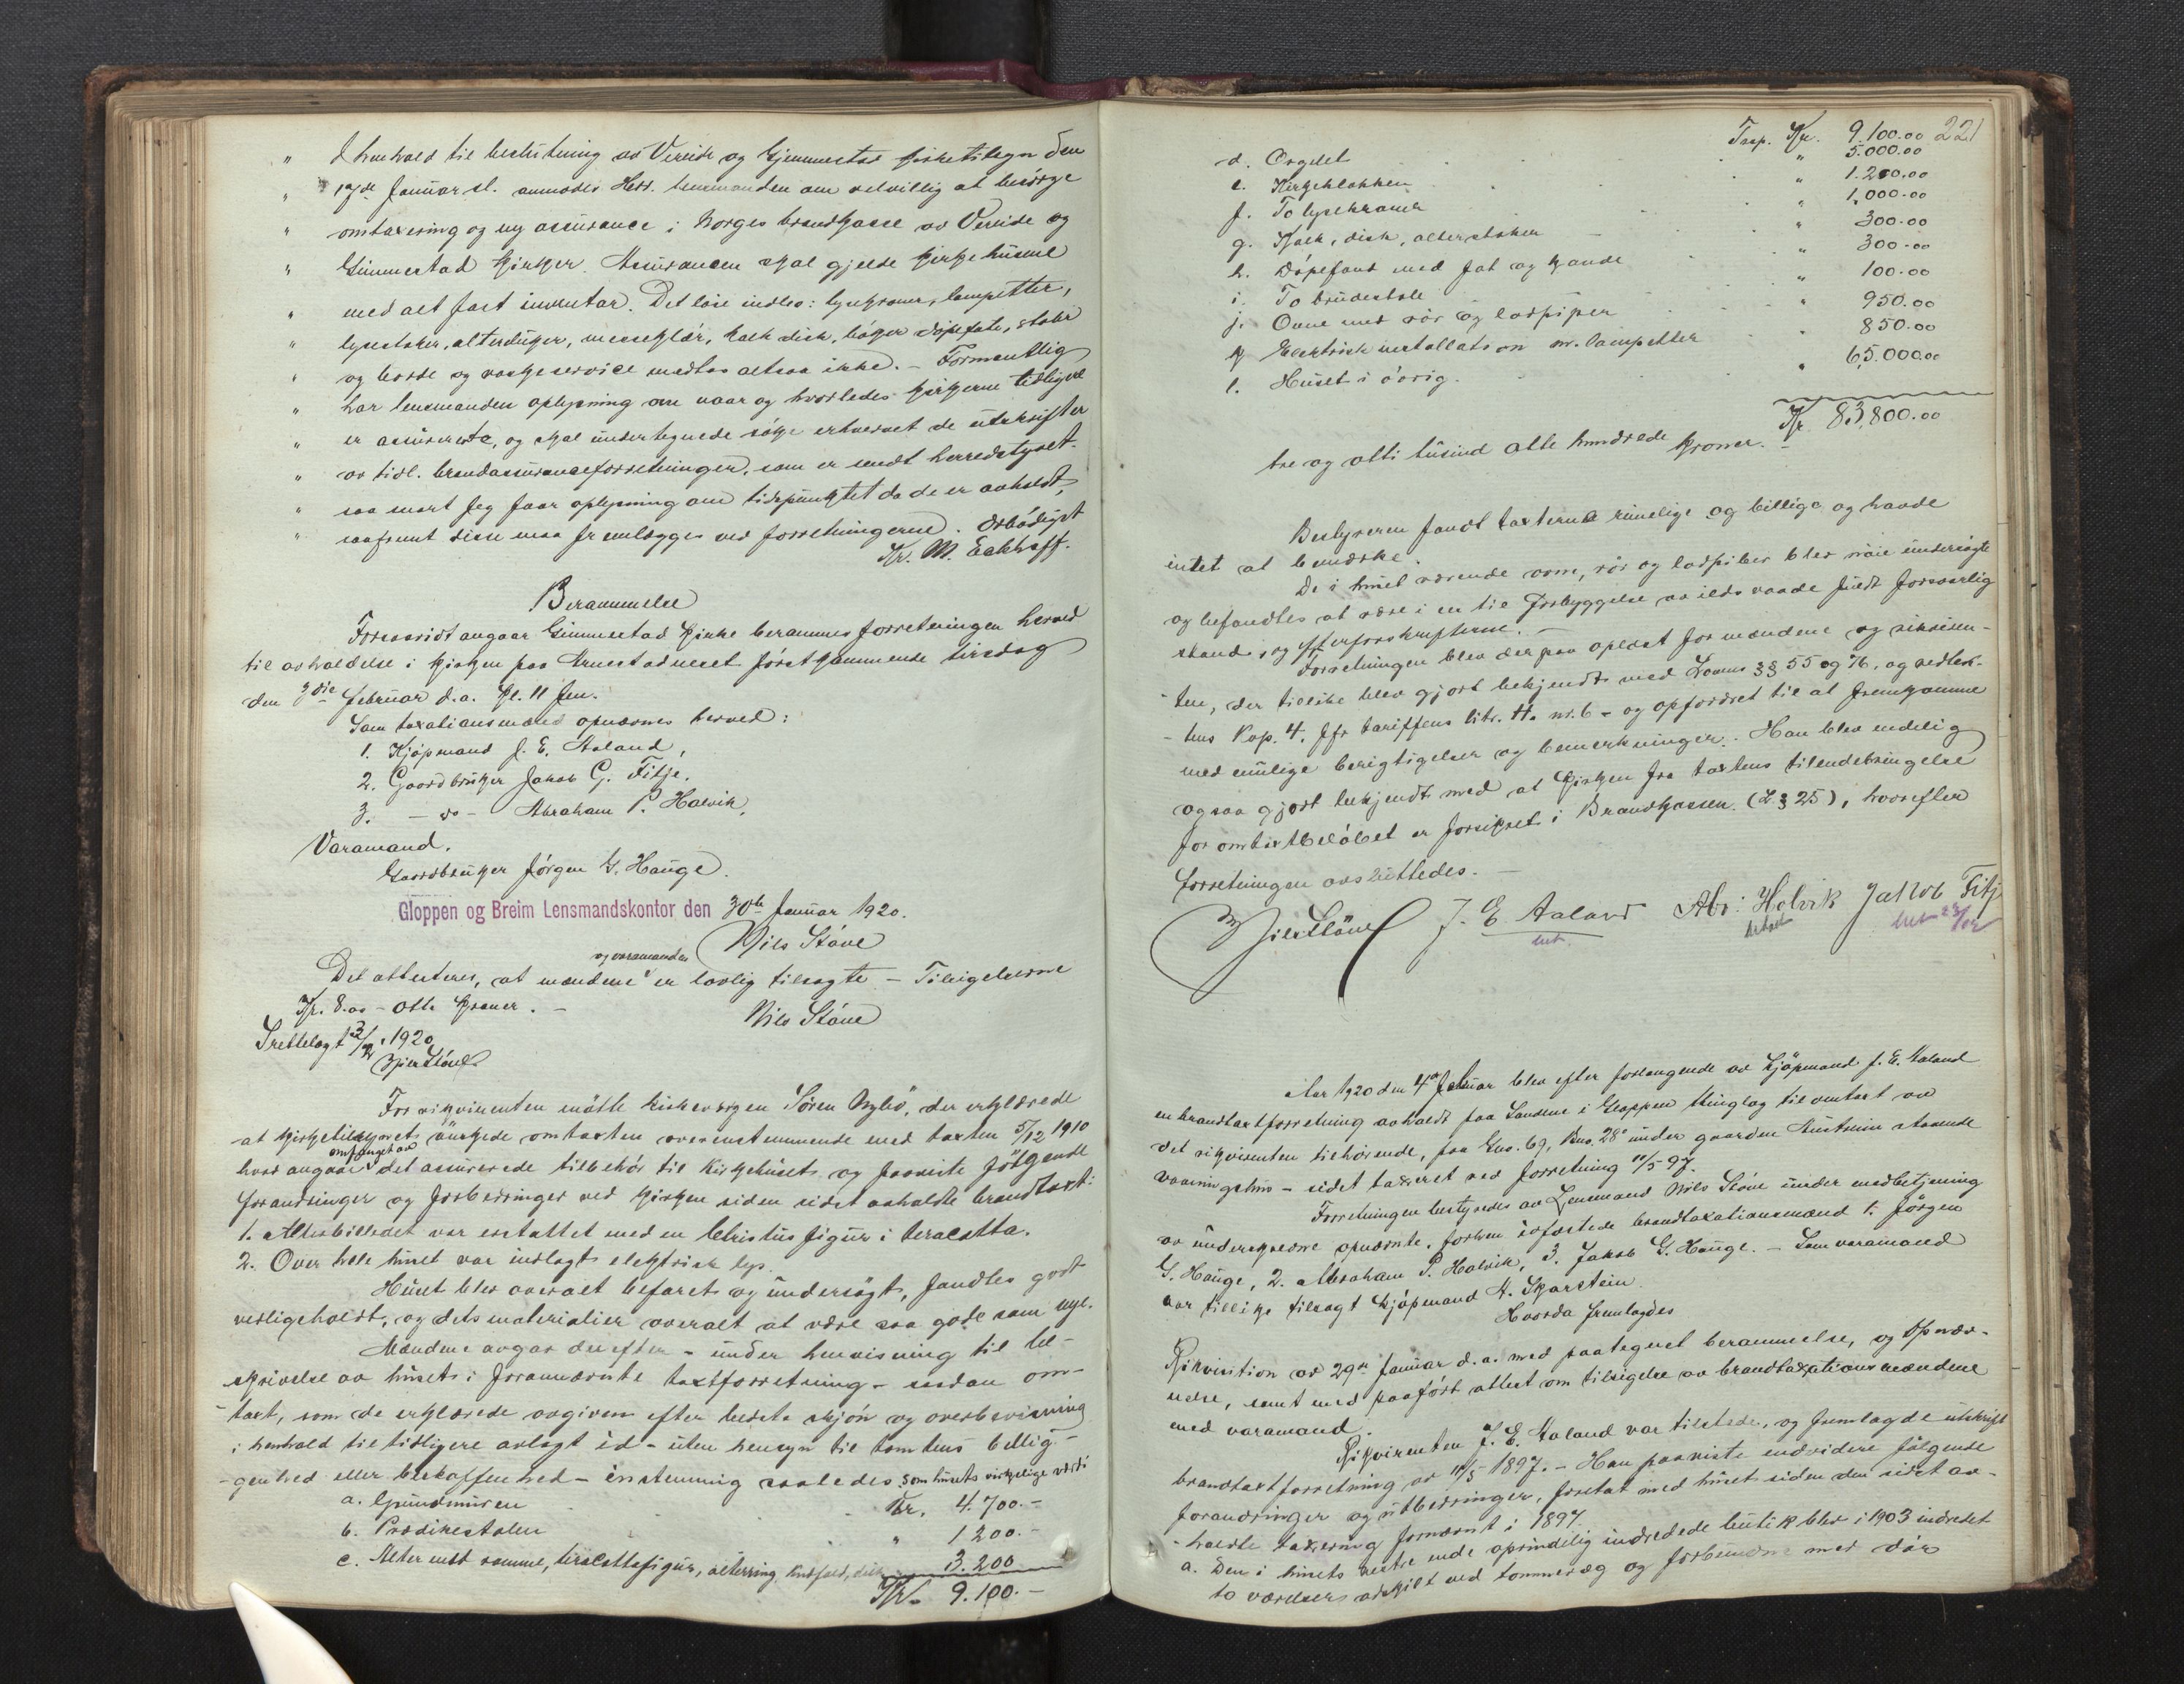 " I henhold til beslutning av Vereide og Gjemmestad kirketilsyn den
" 17de Januar sl. anmodes Herr. lensmanden om velvillig at besørge
" omtaxering og ny assurance i Norges brandkasse av Vereide og
" Gimmestad kirker. Assurancen skal gjelde kirkehusene
" med alt fast inventar. Det løse indbo: lysekroner, lampetter,
" lysestaker, alterduger, messeklær, kalk disk, bøger døpefate, stoler
" og borde og vaskeservice medtas altsaa ikke. – Formentlig
" har lensmanden oplysning om naar og hvorledes kirkerne tidligere
" er assurerte, og skal undertegnede søke erhvervet de utskrifter
" av tidl. brandassuranceforretninger, som er sendt herredstyret.
" saa snart jeg faar oplysning om tidspunktet da de er avholdt,
" saafremt disse maa fremlægges ved forretningerne. Ærbødigst
Kr. M. Eckhoff.
Berammelse
Forsaavidt angaar Gimmestad kirke berammes forretningen herved
til avholdelse i kirken paa Arnestadneset førstkommende tirsdag
den 3die februar d.a. kl. 11 fm.
Som taxationsmænd opnævnes herved:
1. Kjøpmand J. E. Aaland,
2. Gaardbruker Jakob G. Fitje.
3. – do – Abraham P. Holvik,
Varamand.
Gaardbruker Jørgen G. Hauge.
Gloppen og Breim Lensmandskontor den 30te Januar 1920.
Nils Støve
og varamanden
Det attesteres, at mændene er lovlig tilsagte – Tilsigelserne
Kr. 8.00 – otte kroner. –
Nils Støve
Irettelagt 3/2 1920
Nils Støve
For rikvirenten møtte kirkevergen Søren Nybø, der erklærede
at kirketilsynets ønskede omtaxten overenstemmende med taxten 5/12 1910
omfanget av
hvad angaar det assurerede tilbehør til kirkehuset, og paaviste følgende
forandringer og forbedringer ved kirken siden sidst avholdte brandtaxt:
1. Alterbilledet var erstattet med en Christus figur i teracotta.
2. Over hele huset var indlagt elektrisk lys.
Huset blev overalt befaret og undersøgt, fandtes godt
vedligeholdt, og dets materialier overalt at være saa gode som nye.
Mændene avgav derefter – under henvisning til be-
skrivelse av huset i forannævnte taxtforretning – saadan om-
taxt, som de erklærede avgiven efter bedste skjøn og overbevisning
i henhold til tidligere avlagt ed – uten hensyn til tomtens bellig-
genhed eller beskaffenhed – enstemmig saaledes som husets virkelige værdi
a. Grundmuren Kr. 4.700.–
b. Prædikestolen " 1200.–
c. Alter med ramme, teracottafigur, alterring, knæfald, 3.200
Kr. 9.100.–
221
Trsp. Kr. 9.100.00
d. Orgelet " 5.000.00
e. Kirkeklokken " 1.200.00
f. To lysekroner " 1.000.00
g. Kalk, disk, alterstaker " 300.00
h. Døpefont med fat og kande " 300.00
i. To brudestole " 100.00
j. Ovne med rør og ladpiper " 950.00
k. Elektrisk installation m. lampetter " 850.00
l. Huset i øvrig. " 65.000.00
Kr. 83,800.00
tre og otti tusind otte hundrede kroner.
Bestyreren fandt taxterne rimelige og billige og havde
intet at bemærke.
De i huset værende ovne, rør og ladpiber blev nøie undersøgte
og befandtes at være i en til forebyggelse av ildsvaade fuldt forsvarlig
stand, og efter forskrifterne. –
Forretningen blev derpaa oplæst for mændene og rikviren-
ten, der tillike blev gjort bekjendt med Lovens §§ 55 og 76, og vedtæk-
tens Kap. 4, jfr tariffens litr. H. nr. 6 – og opfordret til at fremkomme
med mulige berigtigelser og bemerkninger. Han blev endelig
ogsaa gjort bekjendt med at kirken fra taxtens tilendebringelse
for omtaxtbeløbet er forsikret i Brandkassen (L. § 25), hvorefter
forretningen avsluttedes. –
Nils Støve J. E. Aaland Abr: Holvik Jakob Fitje
Aar 1920 den 4de februar blev efter forlangende av Kjøpmand J. E. Aaland
en brandtaxtforretning avholdt paa Sandene i Gloppen thinglag til omtaxt av
det rikvirenten tilhørende, paa Gno. 69, Bno. 28 under gaarden Austrum staaende
vaaningshus – sidst taxeret ved forretning 11/5 97.
Forretningen bestyredes av Lensmand Nils Støve under medbetjening
av underskrevne opnævnte, forhen edfæstede brandtaxationsmænd 1. Jørgen
G. Hauge, 2. Abraham P. Holvik, 3. Jakob G. Hauge. – Som varamand
var tillike tilsagt kjøpmand A. Skarstein.
Hvorda fremlagdes
Rikvisition av 29de Januar d.a. med paategnet berammelse, og opnæv-
nelse, samt med paaført attest om tilsigelse av brandtaxationsmændene
med varamand.
Rikvirenten J. E. Aaland var tilstede, og fremlagde utskrift
brandtaxtforretning av 11/5 1897. – Han paaviste endvidere følgende
forandringer og utbedringer, foretat med huset siden den sidst av-
holdte taxering fornævnt i 1897.
a. Den i husets vestre ende oprindelig indredede butik blev i 1903 indredet
to værelser adskilt ved tømmervæg og forbundne med dør